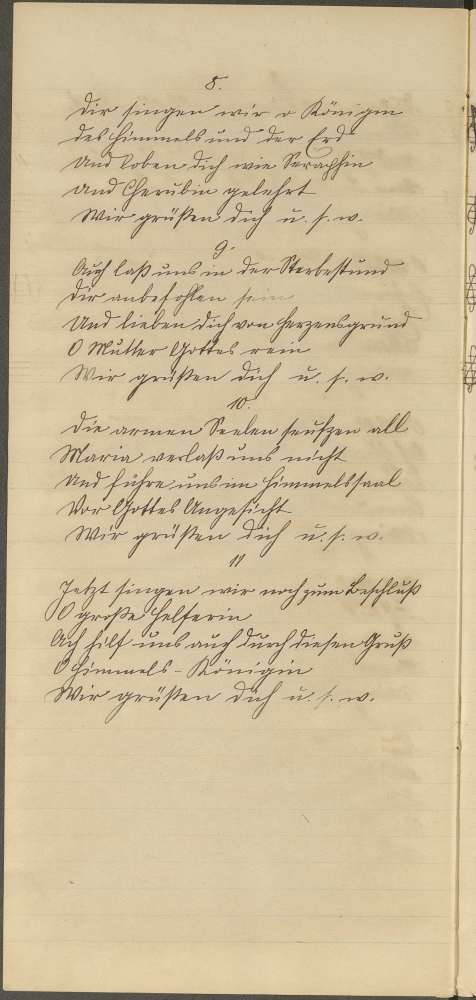 8.
Dir singen wir o Königin
des Himmels und der Erd
Und loben dich wie Seraphin
und Cherubin gelehrt
Wir grüßen dich u. s. w.
9.
Auch laß uns in der Sterbestund
Dir anbefohlen sein
Und lieben dich von Herzensgrund
O Mutter Gottes rein
Wir grüßen dich u. s. w.
10.
Die armen Seelen seufzen all
Maria verlaß uns nicht
Und führe uns im Himmelssaal
Vor Gottes Angesicht
Wir grüßen dich u. s. w.
11
Jetzt singen wir noch zum Beschluß
O große Helferin
Ach hilf uns auch durch diesen Gruß
O Himmels-Königin
Wir grüßen dich u. s. w.